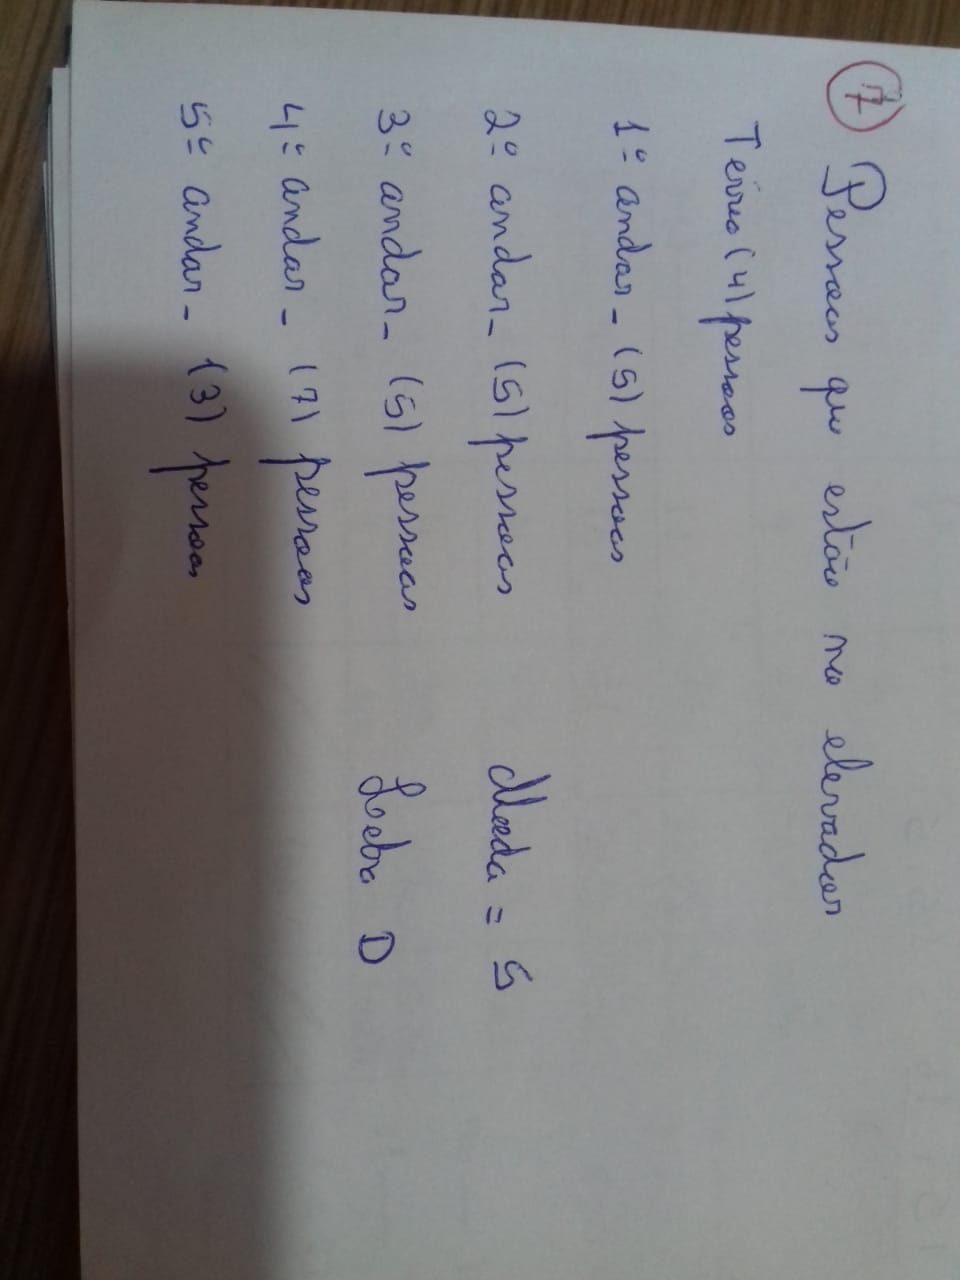 7 Pessoas que estão no elevador
Térreo (4) pessoas
1º andar - (5) pessoas
2º andar - (5) pessoas
Moda = 5
3º andar - (5) pessoas
Letra D
4º andar - (7) pessoas
5º andar - (3) pessoas